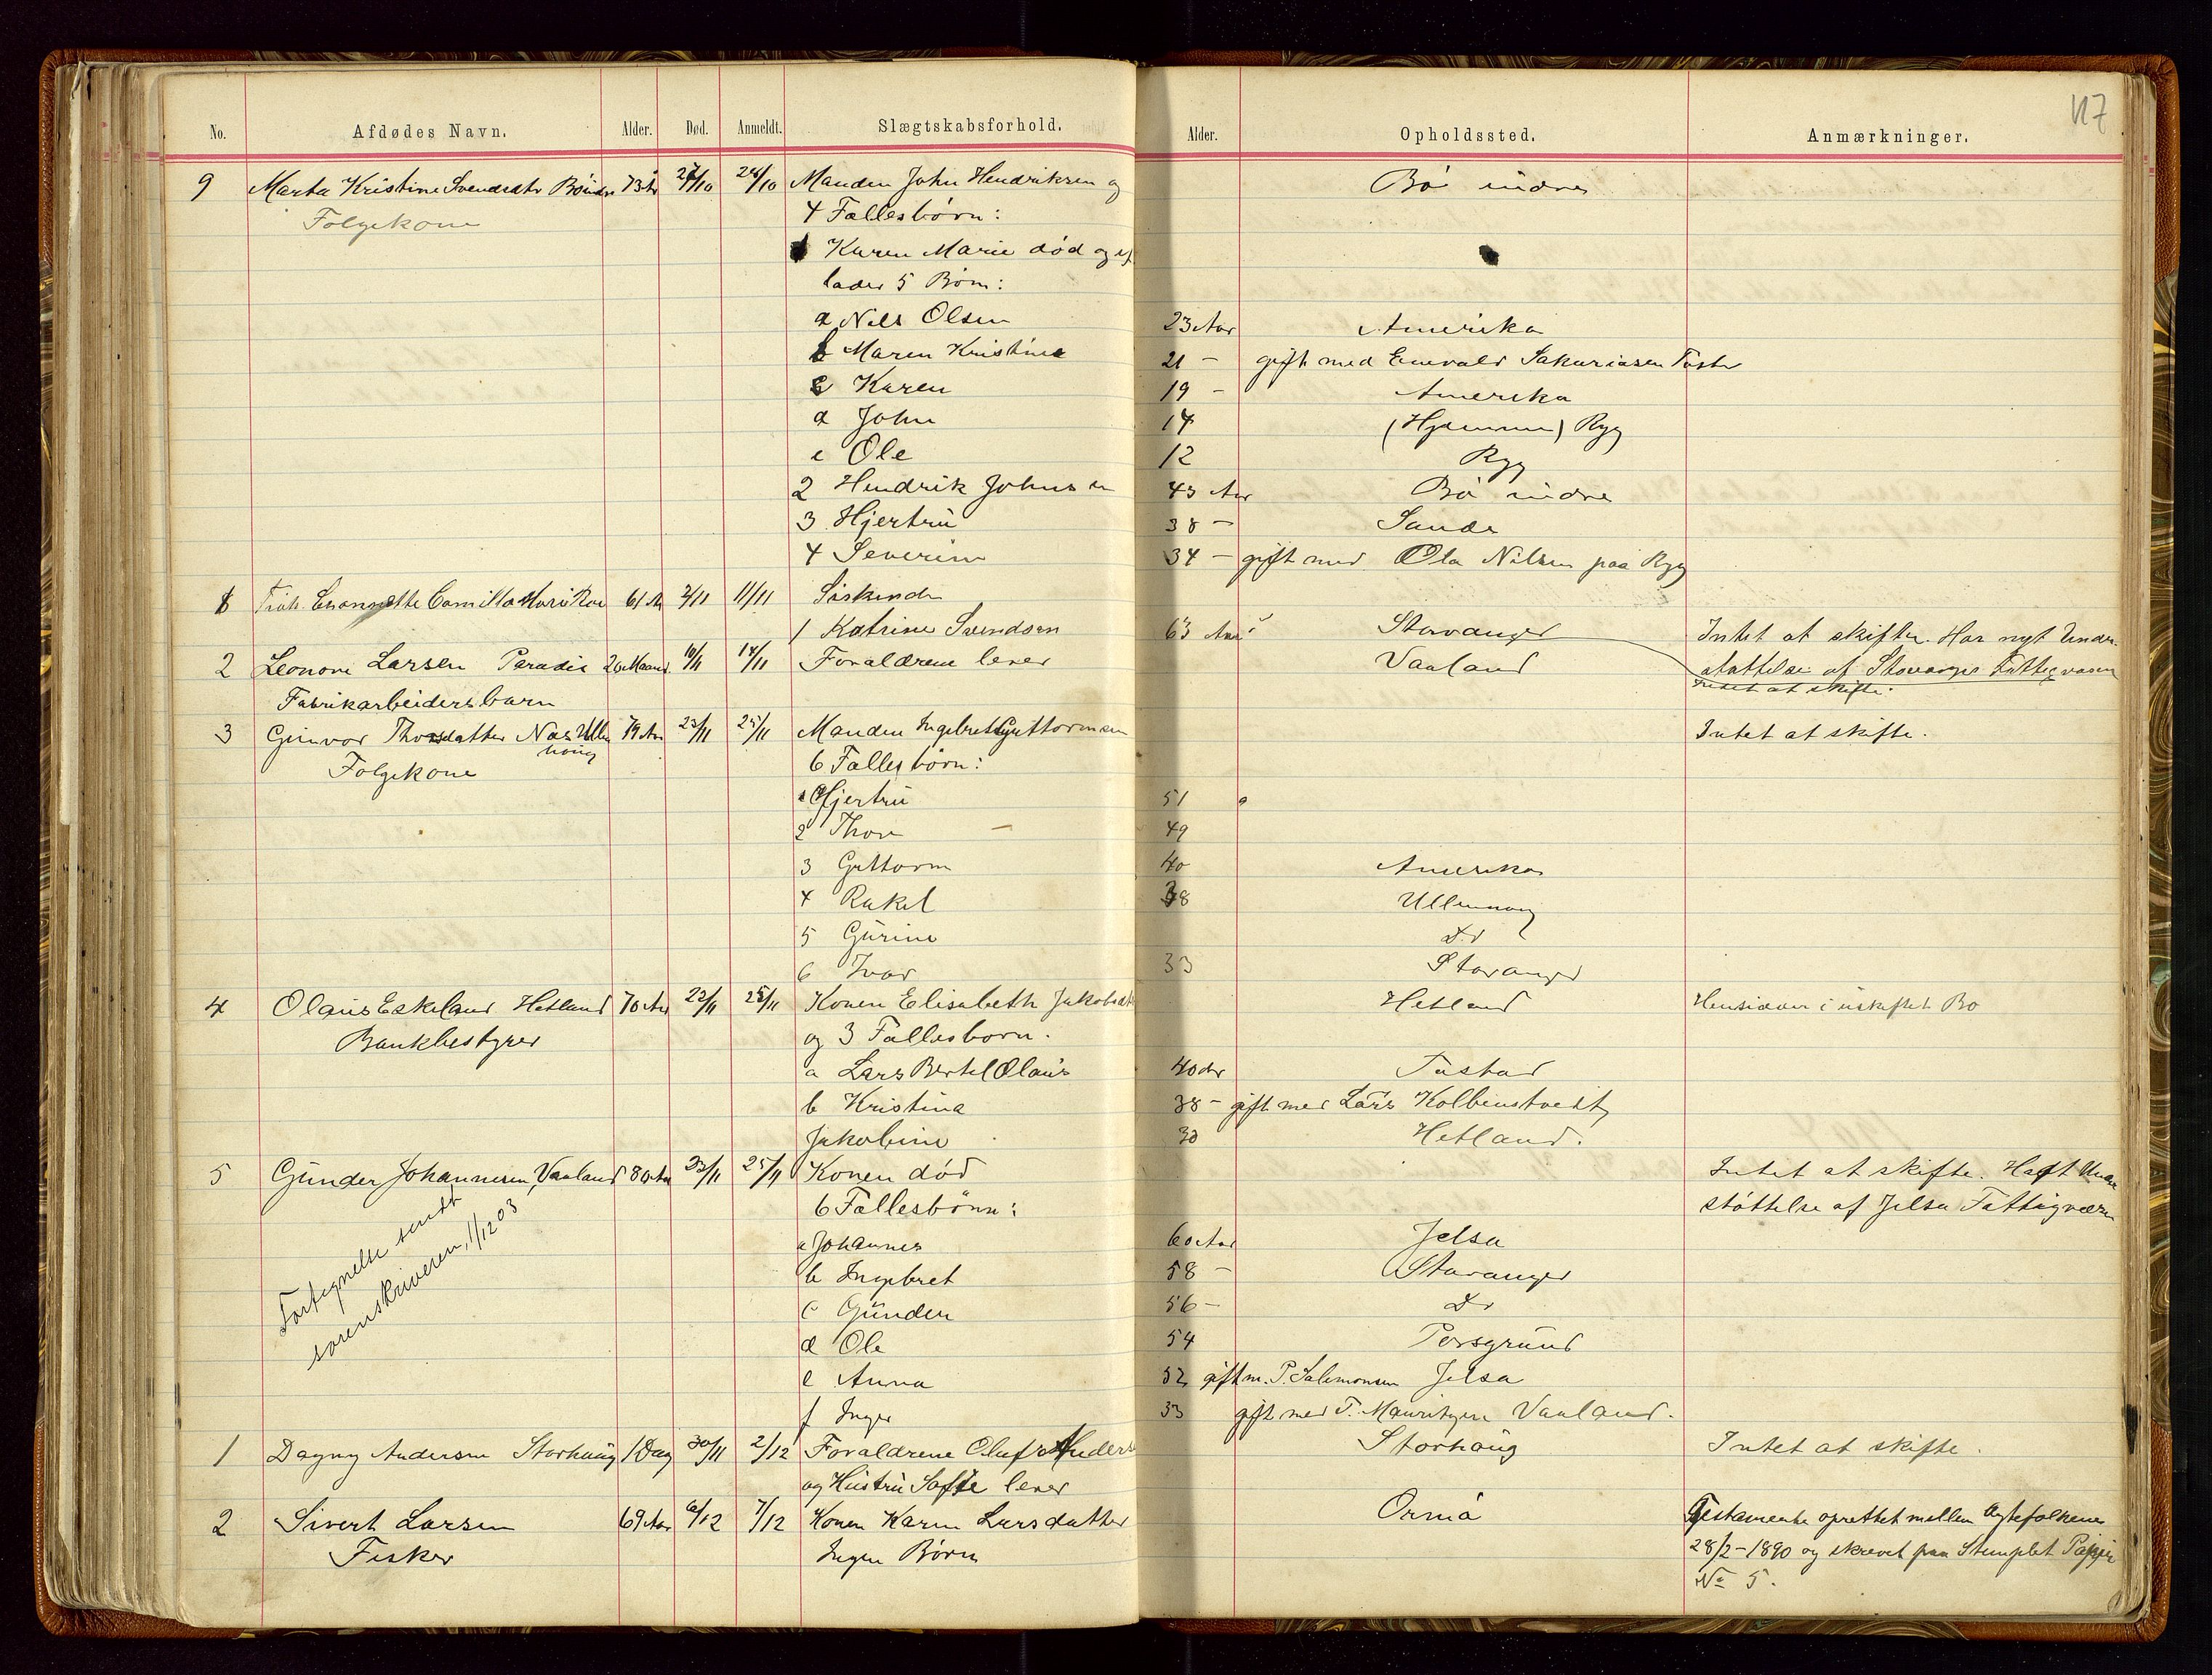 117
No. Afdødes Navn. Alder. Død. Anmeldt. Slægtskabsforhold. Alder. Opholdssted. Anmærkninger.
9 Marta Kristine Svendsdtr Bö indre 73 Ar 27/10 28/10 Manden John Hendriksen og Bö indre
Følgekone 4 Fællesbörn:
1 Karen Marie död og ef
lader 5 Börn:
a Nils Olsen 23 Aar Amerika
b Maren Kristine 21 - gift med Enevald Sakariasen Tastr
c Karen 19 - Amerika
d John 14 (Hjemme) Ryg
e Ole 12 Ryg
2 Hendrik Johnsen 43 Aar Bö indre
3 Hjertrü 38 - Sande
4 Severine 34 - gift med Ola Nilsen paa Ryg
1 Camilla 61 Ar 2/11 11/11 Söskende
1 Katrine Svendsen 63 Aar Stavanger Intet at skifte. Har nydt Under-
2 Leonore Larsen Paradis 20 Maand. 10/11 14/11 Forældrene lever Vaaland støttelse af Stavanger Fattigvæsen
Fabrikarbeiders barn Intet at skifte.
3 Günvor Thorsdatter 79 Aar 23/11 25/11 Manden Ingebret Guttormsen Intet at skifte.
Følgekone 6 Fællesbörn:
1 Gjertrü 51
2 Thore 49
3 Guttorm 40 Amerika
4 Rakel 38 Ullenhoug
5 Gürine Do
6 Ivar 33 Stavanger
4 Olaüs Eskeland Hetland 70 Aar 22/11 25/11 Konen Elisabeth Jakobsdtr Hetland Hensidder i üskiftet Bo
Bankbestyrer og 3 Fællesbørn.
a Lars Bertel Olaüs 40 Aar Tastad
b Kristina 38 - gift med Lars Kolbenstvedt
Jakobine 30 Hetland.
5 Günder Johannesen, Vaaland 80 Aar 23/11 25/11 Konen död Intet at skifte. Haft Under
6 Fællesbörn: støttelse af Jelsa Fattigvæsen
Fortegnelse sendt
sorenskriveren, 1/12 03
a Johannes 60 Aar Jelsa
b Ingebret 58 - Stavanger
c Günder 56 - Do
d Ole 54 Porsgründ
e Anna 52 gift m. P. Salomonsen Jelsa
f Inger 33 gift med T. Mauritzen Vaaland.
1 Dagny Andersen Storhaüg 1 Dag 30/11 2/12 Forældrene Oluf Anders Storhaüg Intet at skifte.
og Hüstrü Sofie lever
2 Sivert Larsen 69 Aar 6/12 7/12 Konen Karen Larsdatter Ormö Testamente oprettet mellem Ægtefolkene
Fisker Ingen Börn 28/2-1890 og skrevet paa Stemplet Papir
No 5.